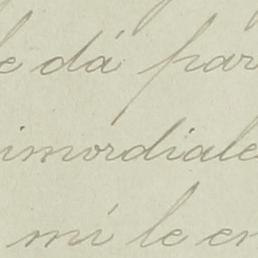 le dá par
imordiale
mi le en